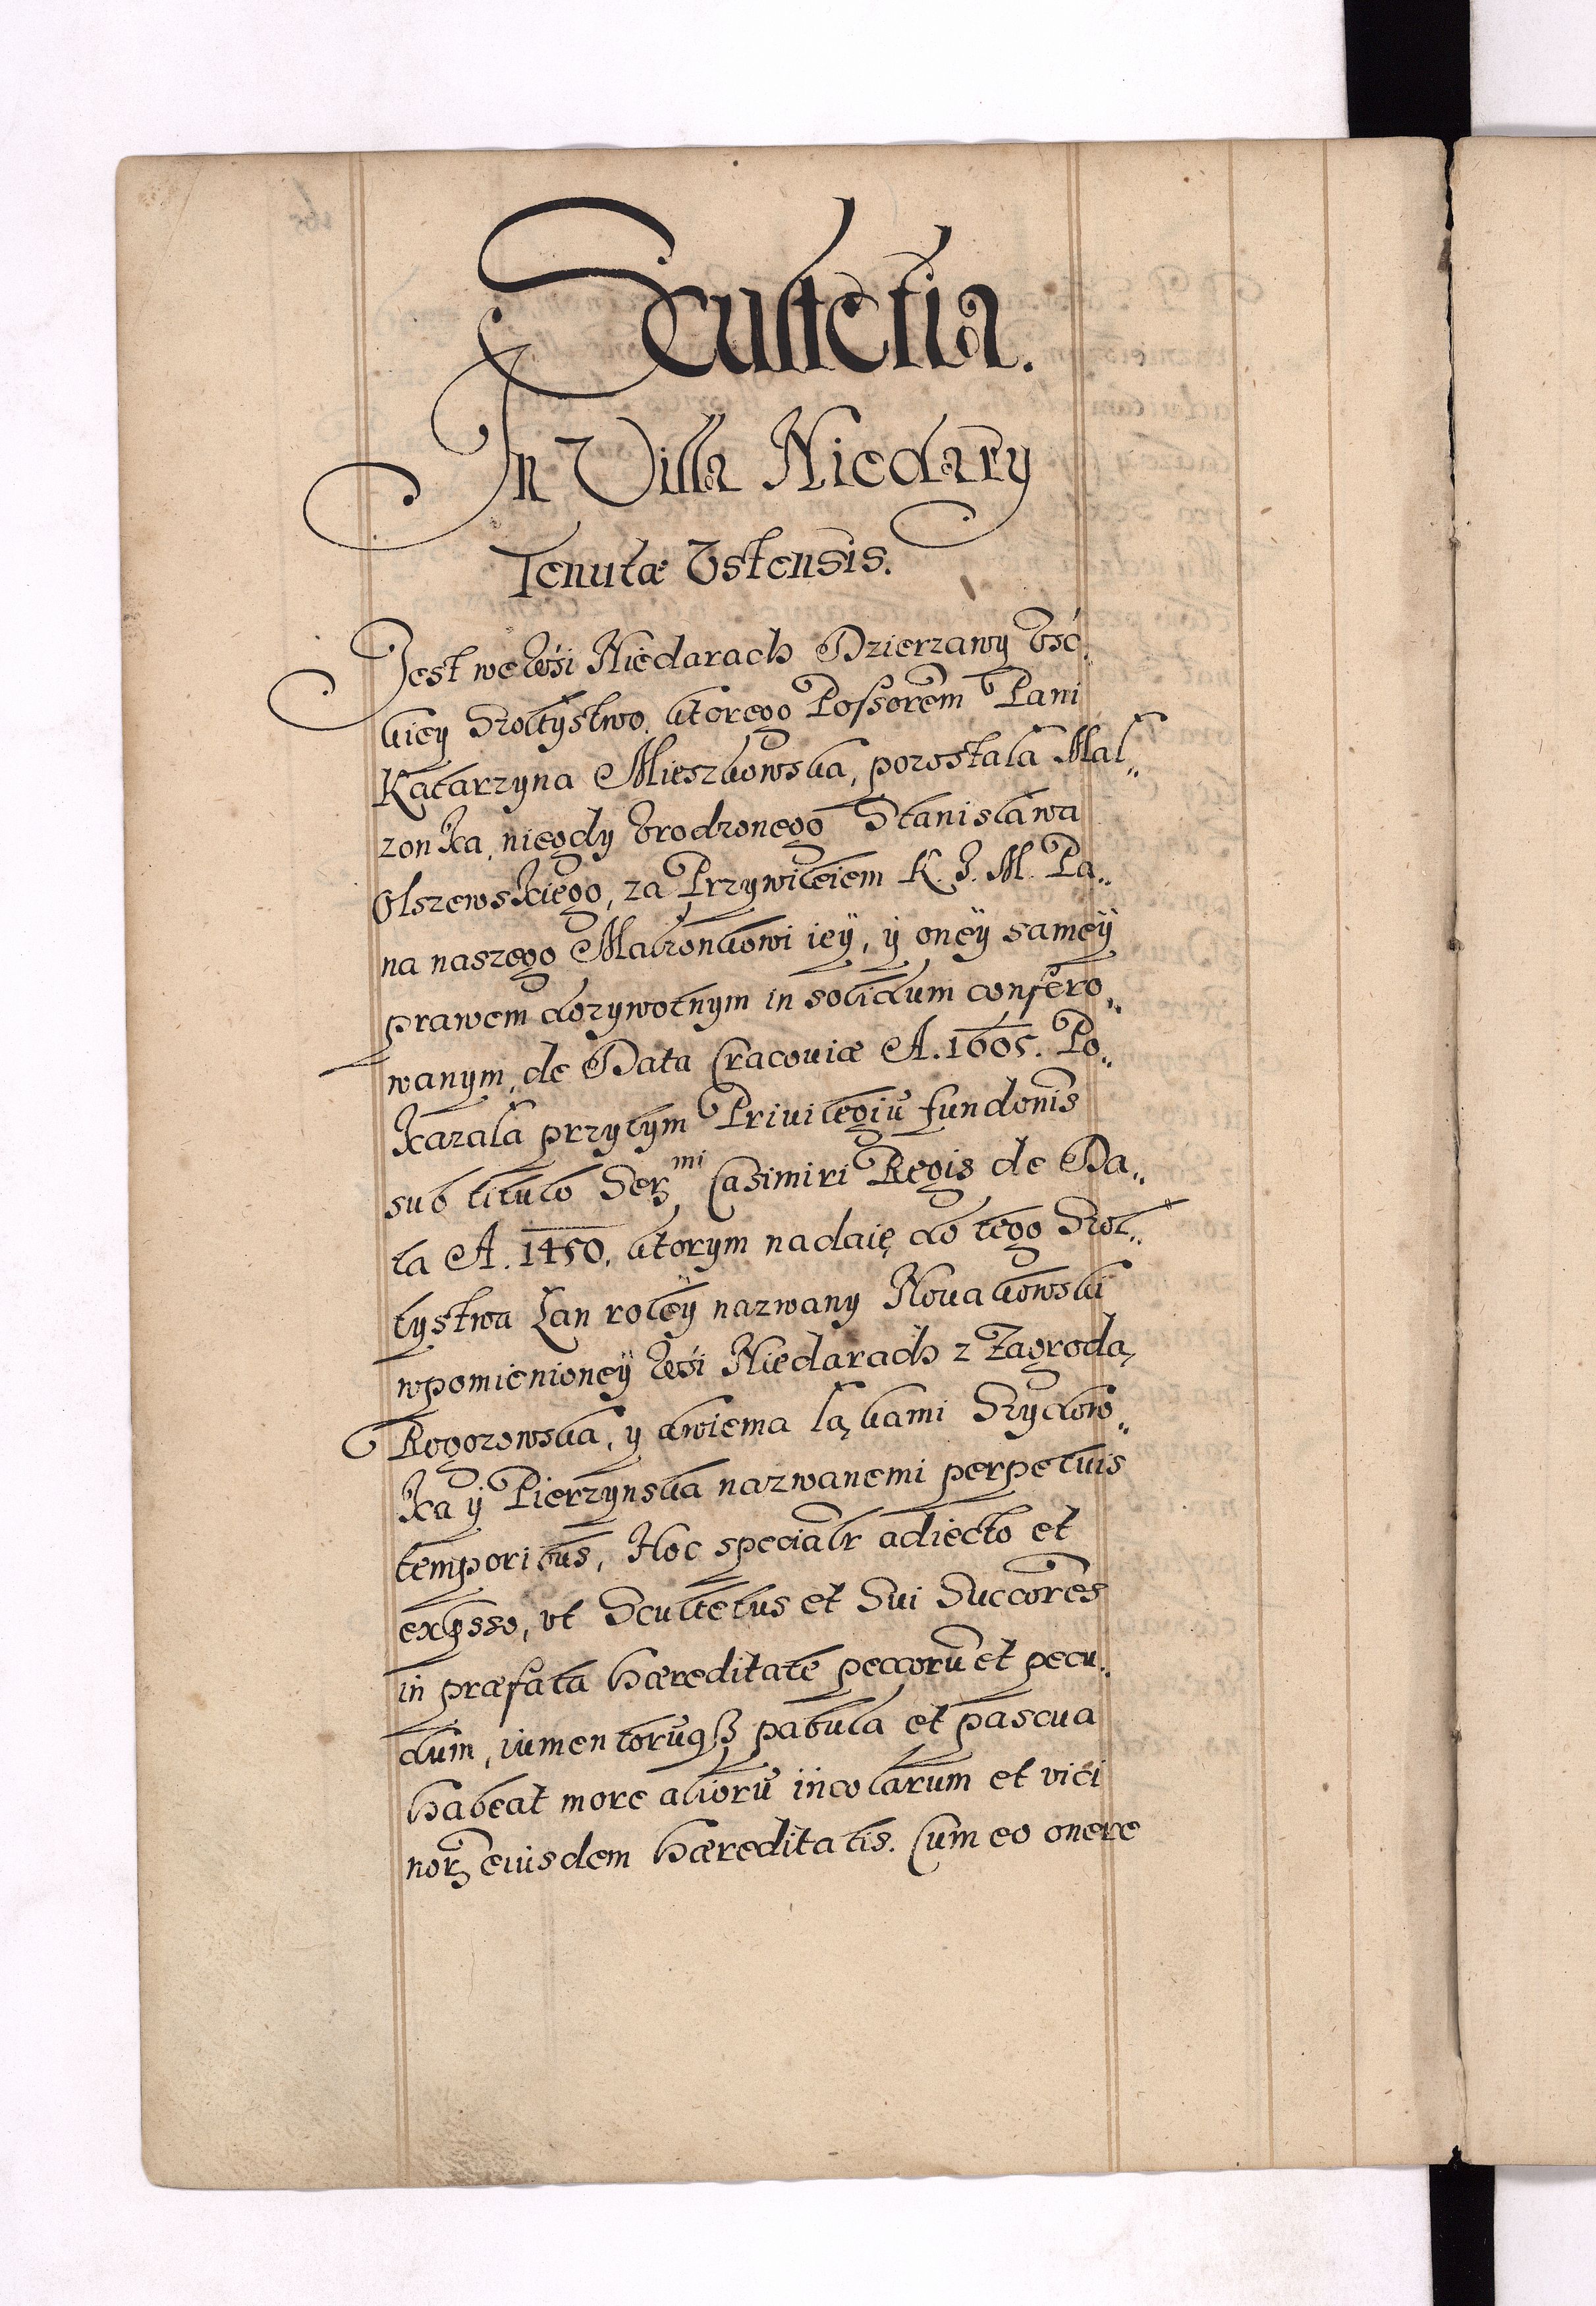 Scultetia.
In Villa Niedary
Tenutæ Vstensis.
Jest we Wsi Niedarach Dzierzawy Vśc„
kiey Szołtystwo, ktorego Possorem Pani
Katarzyna Mieszkowska, pozostała Mał„
zonka, niegdy Vrodzonego Stanisława
Olszewskiego, za Przywileiem K. J. M. Pa„
na naszego Małzonkowi iey, y oney samey
prawem dozywotnym in solidum confero„
wanym, de Data Cracouiæ A. 1605. Po„
kazała przytym Priuilegiũ fundonis
sub titulo Serᵐⁱ Casimiri Regis de Da„
ta A. 1450. ktorym nadaię do tego Szoł„
tystwa Łan roley nazwany Nouakowski
wpomienioney Wsi Niedarach z Zagrodą
Rogozowska, y dwiema łąkami Szydow„
ka y Pierzynska nazwanemi perpetuis
temporibus, Hoc specialr adiecto et
exp̱sso, vt Scultetus et Sui Succores
in præfata hæreditate peccorũ et pecu„
dum, iumentorũqȝ pabula et pascua
habeat more aliorũ incolarum et vici
norȝ eiusdem hæreditatis. Cum eo onere